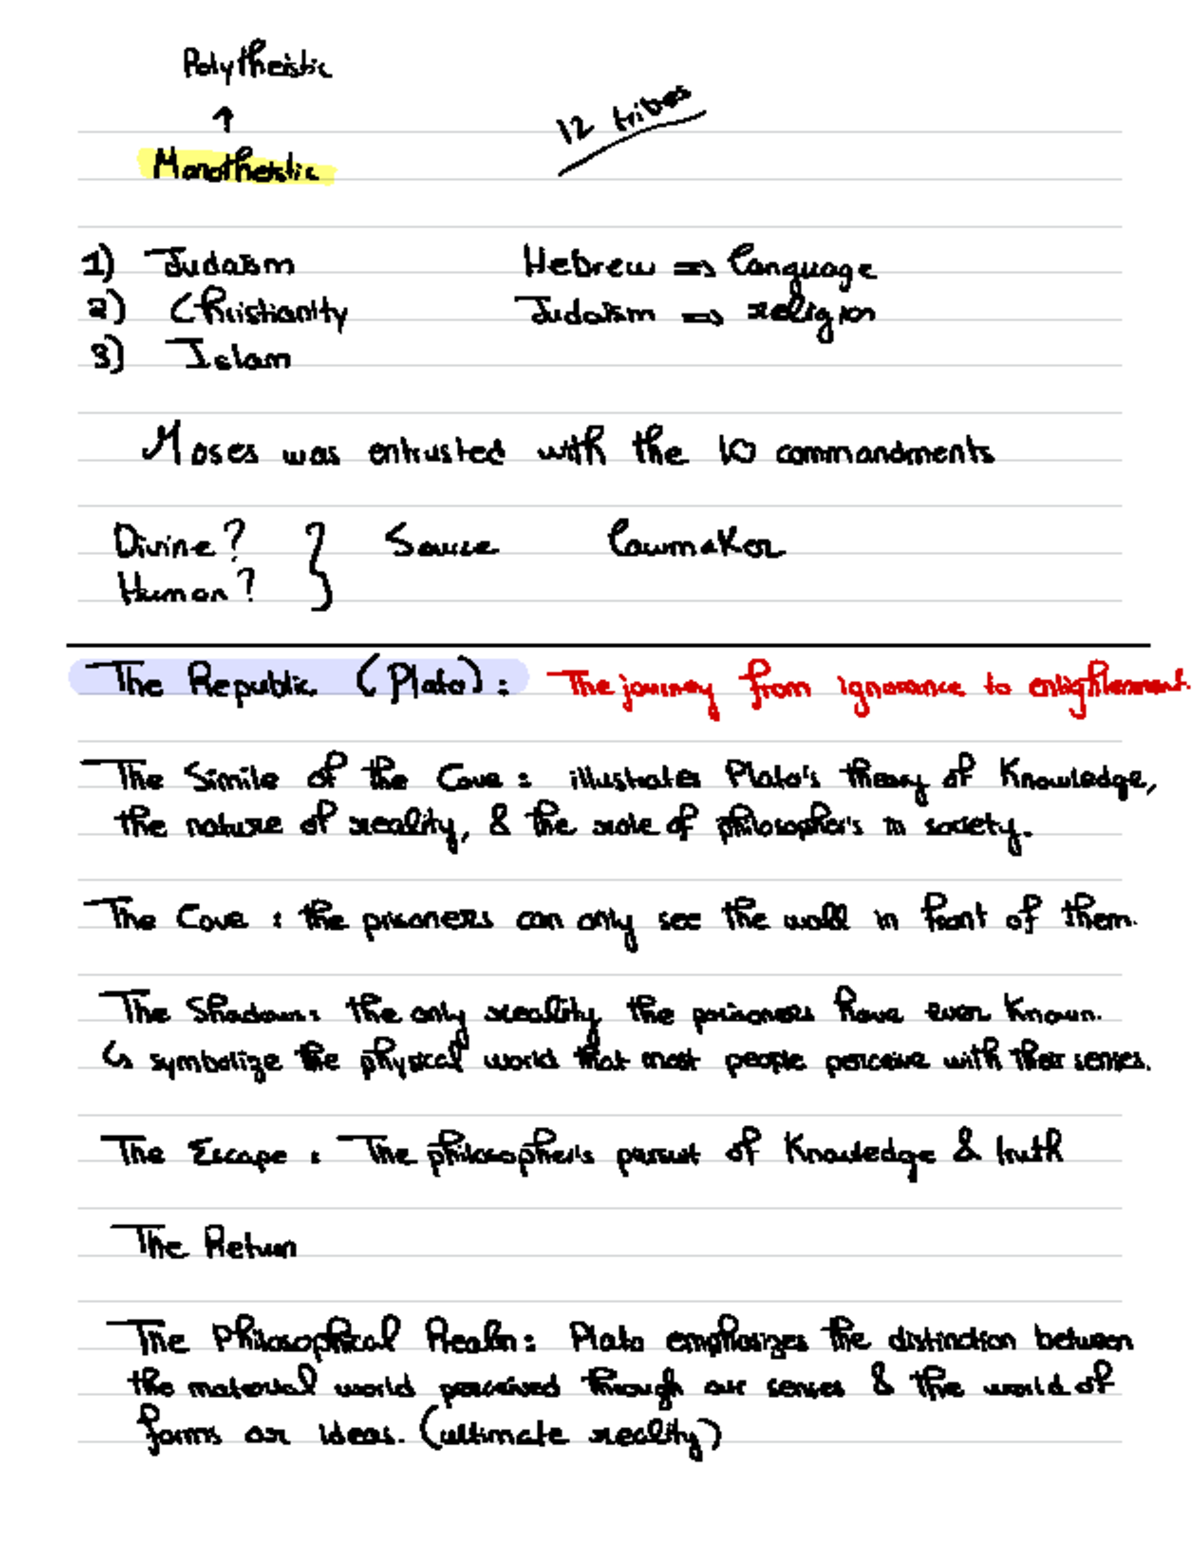 Polytheistic
↑
12 tribes
Monotheistic
1) Judaism
Hebrew => language
2) Christianity
Judaism => religion
3) Islam
Moses was entrusted with the 10 commandments
Divine? } Source lawmaker
Human?
The Republic (Plato): The journey from ignorance to enlightenment.
The Simile of the Cave: illustrates Plato's theory of Knowledge,
the nature of reality, & the role of philosopher's in society.
The Cave: the prisoners can only see the wall in front of them.
The Shadows: the only reality the prisoners have ever known.
↳ symbolize the physical world that most people perceive with their senses.
The Escape: The philosopher's pursuit of Knowledge & truth
The Return
The Philosophical Realm: Plato emphasizes the distinction between
the material world perceived through our senses & the world of
forms or ideas. (ultimate reality)